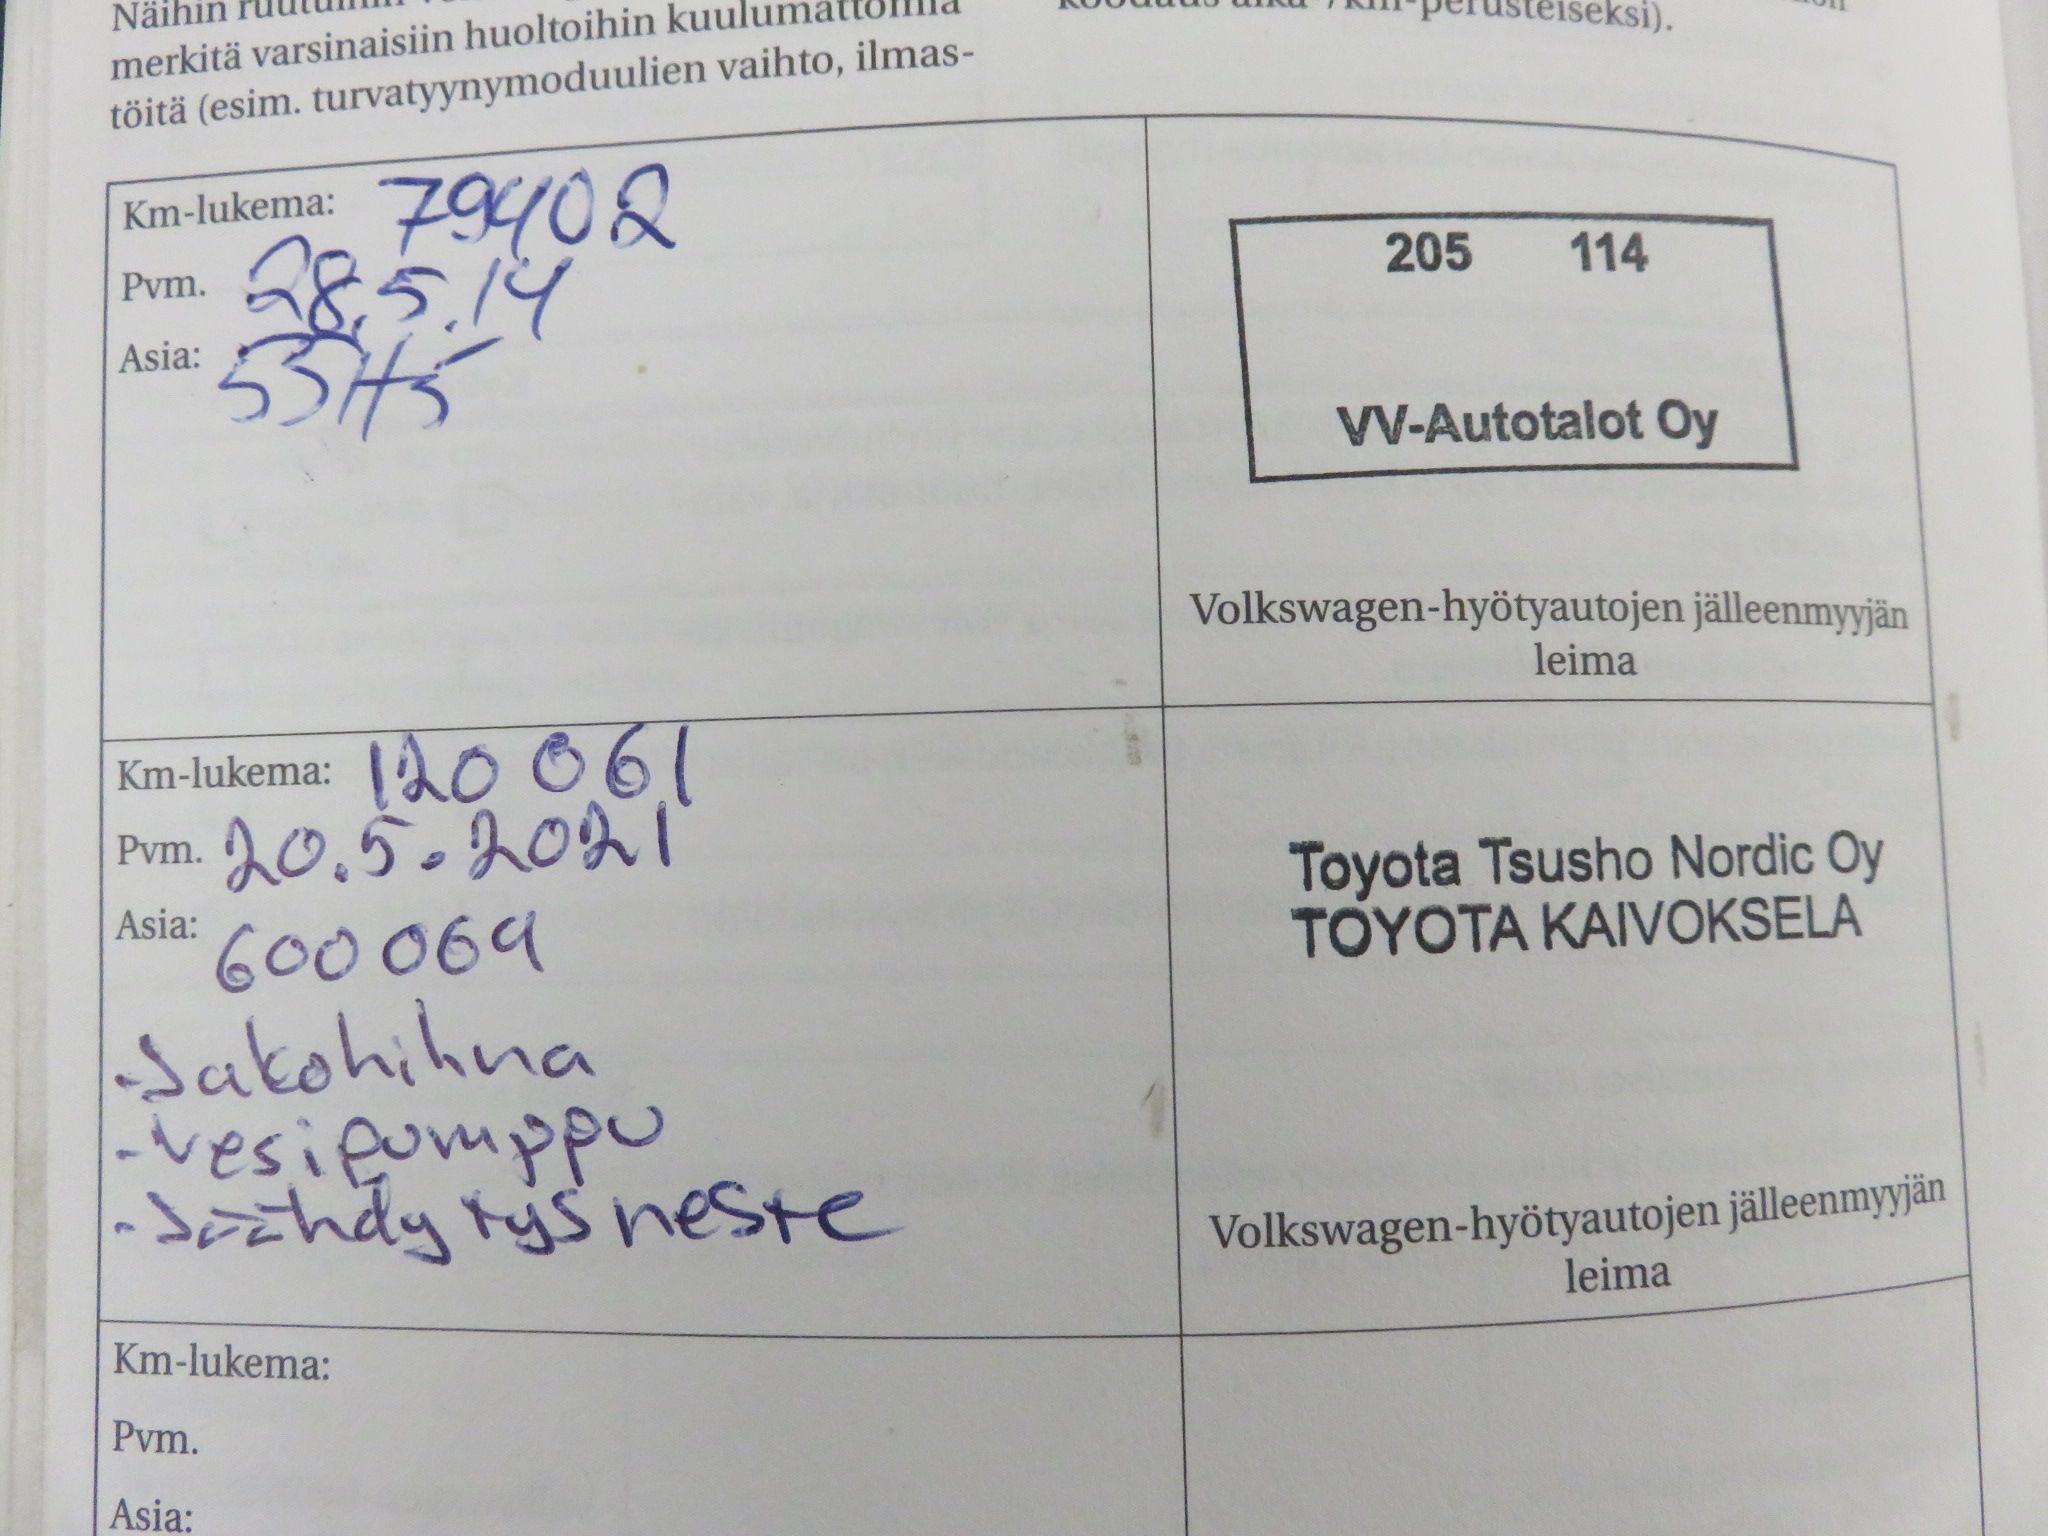 merkitä varsinaisiin huoltoihin kuulumattomia
töitä (esim. turvatyynymoduulien vaihto, ilmas-
Km-lukema: 79402
Pvm. 28.5.14
Asia:
205 114
VV-Autotalot Oy
Volkswagen-hyötyautojen jälleenmyyjän
leima
Km-lukema: 120 061
Pvm. 20.5.2021
Asia: 600069
-Jakohihna
-vesipumppu
-Jäähdytysneste
Toyota Tsusho Nordic Oy
TOYOTA KAIVOKSELA
Volkswagen-hyötyautojen jälleenmyyjän
leima
Km-lukema:
Pvm.
Asia: